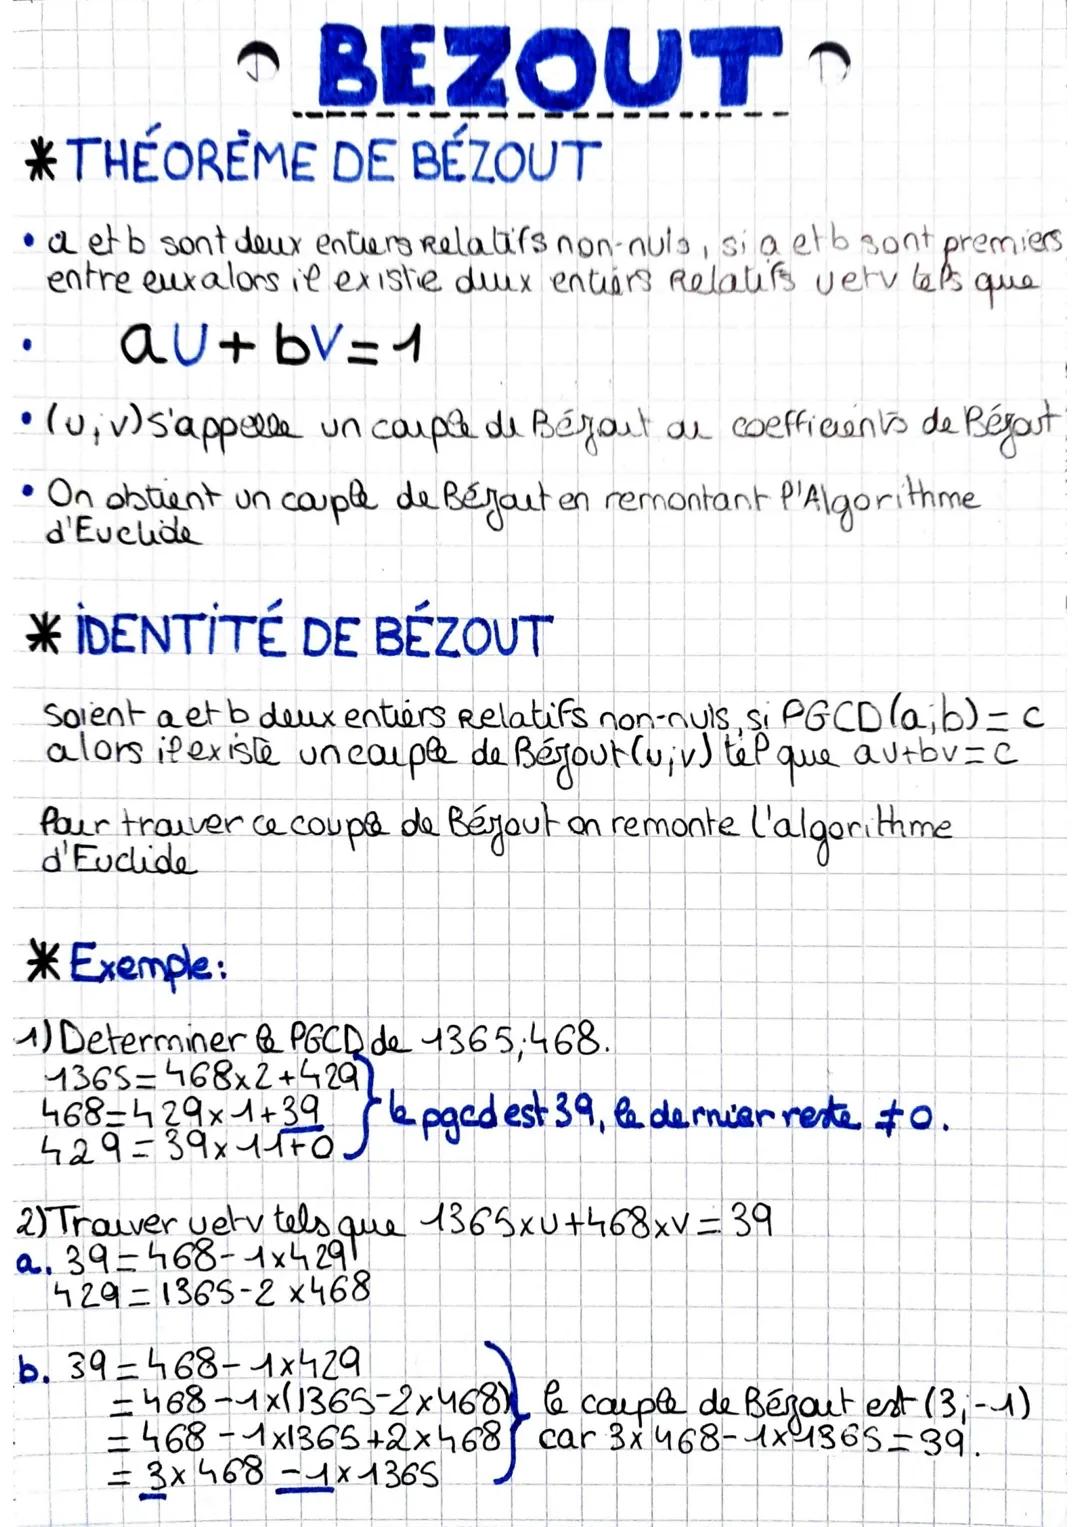 BEZOUT
* THÉORÈME DE BÉZOUT
• a et b sont deux entiers Relatifs non-nuls, si a et b sont premiers
entre eux alors il existe deux entiers Relatifs u et v tels que
• aU + bV = 1
• (u;v) s'appelle un couple de Bézout ou coefficients de Bézout
• On obtient un couple de Bézout en remontant l'Algorithme
d'Euclide
* IDENTITÉ DE BÉZOUT
Soient a et b deux entiers Relatifs non-nuls, si PGCD(a;b) = c
alors il existe un couple de Bézout (u;v) tel que au+bv=c
Pour trouver ce couple de Bézout on remonte l'algorithme
d'Euclide
* Exemple:
1) Determiner le PGCD de 1365;468.
1365=468x2+429
468=429x1+39
429=39x11+0
le pgcd est 39, le dernier reste ≠0.
2) Trouver u et v tels que 1365xu+468xv=39
a. 39=468-1x429
429=1365-2x468
b. 39=468-1x429
=468-1x(1365-2x468)
=468-1x1365+2x468
=3x468-1x1365
le couple de Bézout est (3;-1)
car 3x468-1x1365=39.